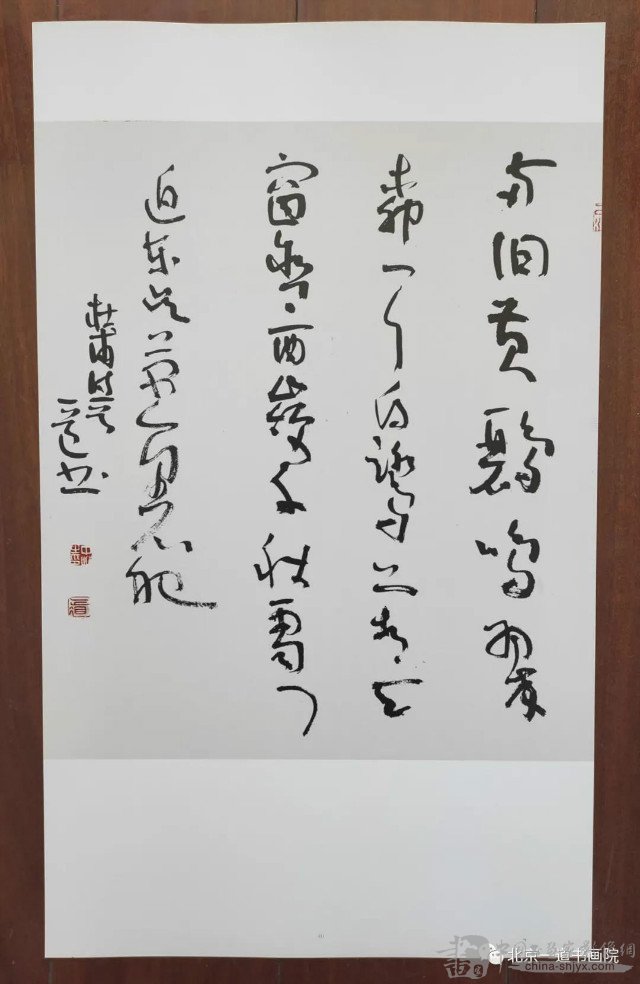 両個黄鸝鳴翠
柳一行白鷺上青天
窗含西嶺千秋雪门
泊东吴万里船
杜甫诗
一道书
北京一道书画院
china-shjyx.com